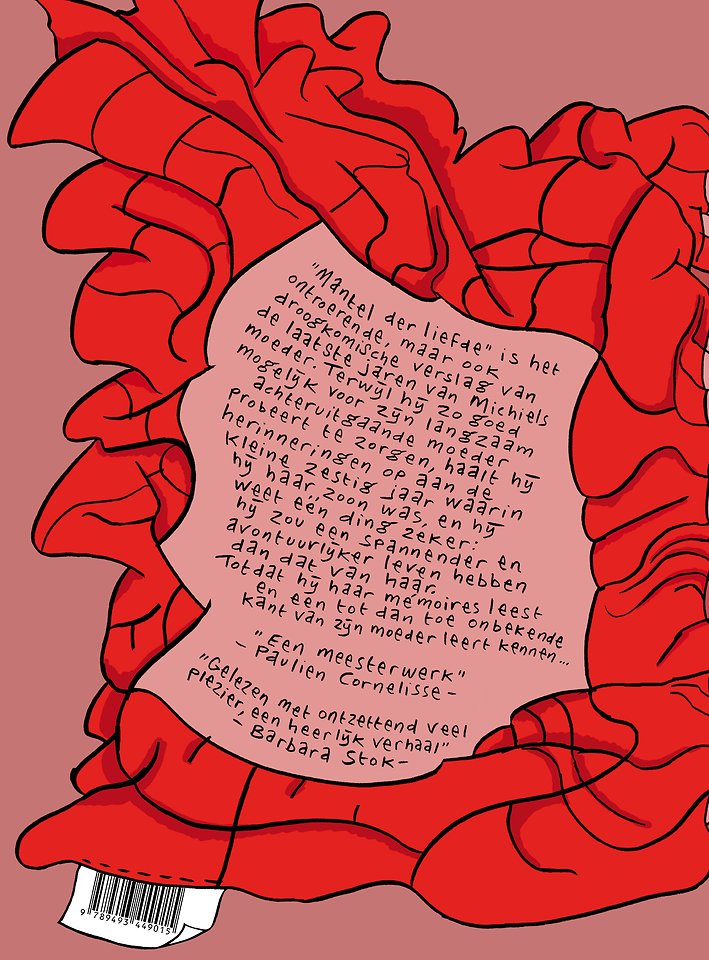 "Mantel der liefde" is het
ontroerende, maar ook van
droogkomische verslag van
de laatste jaren van Michiels
moeder. Terwijl hij zo goed
mogelijk voor zijn langzaam
achteruitgaande moeder
probeert te zorgen, haalt hij
herinneringen op aan de
kleine zestig jaar waarin
hij haar zoon was, en hij
weet één ding zeker:
hij zou een spannender en
avontuurlijker leven hebben
dan dat van haar.
Totdat hij haar mémoires leest
en een tot dan toe onbekende
kant van zijn moeder leert kennen...
"Een meesterwerk"
- Paulien Cornelisse -
"Gelezen met ontzettend veel
plezier, een heerlijk verhaal"
- Barbara Stok -
9 789493 449015